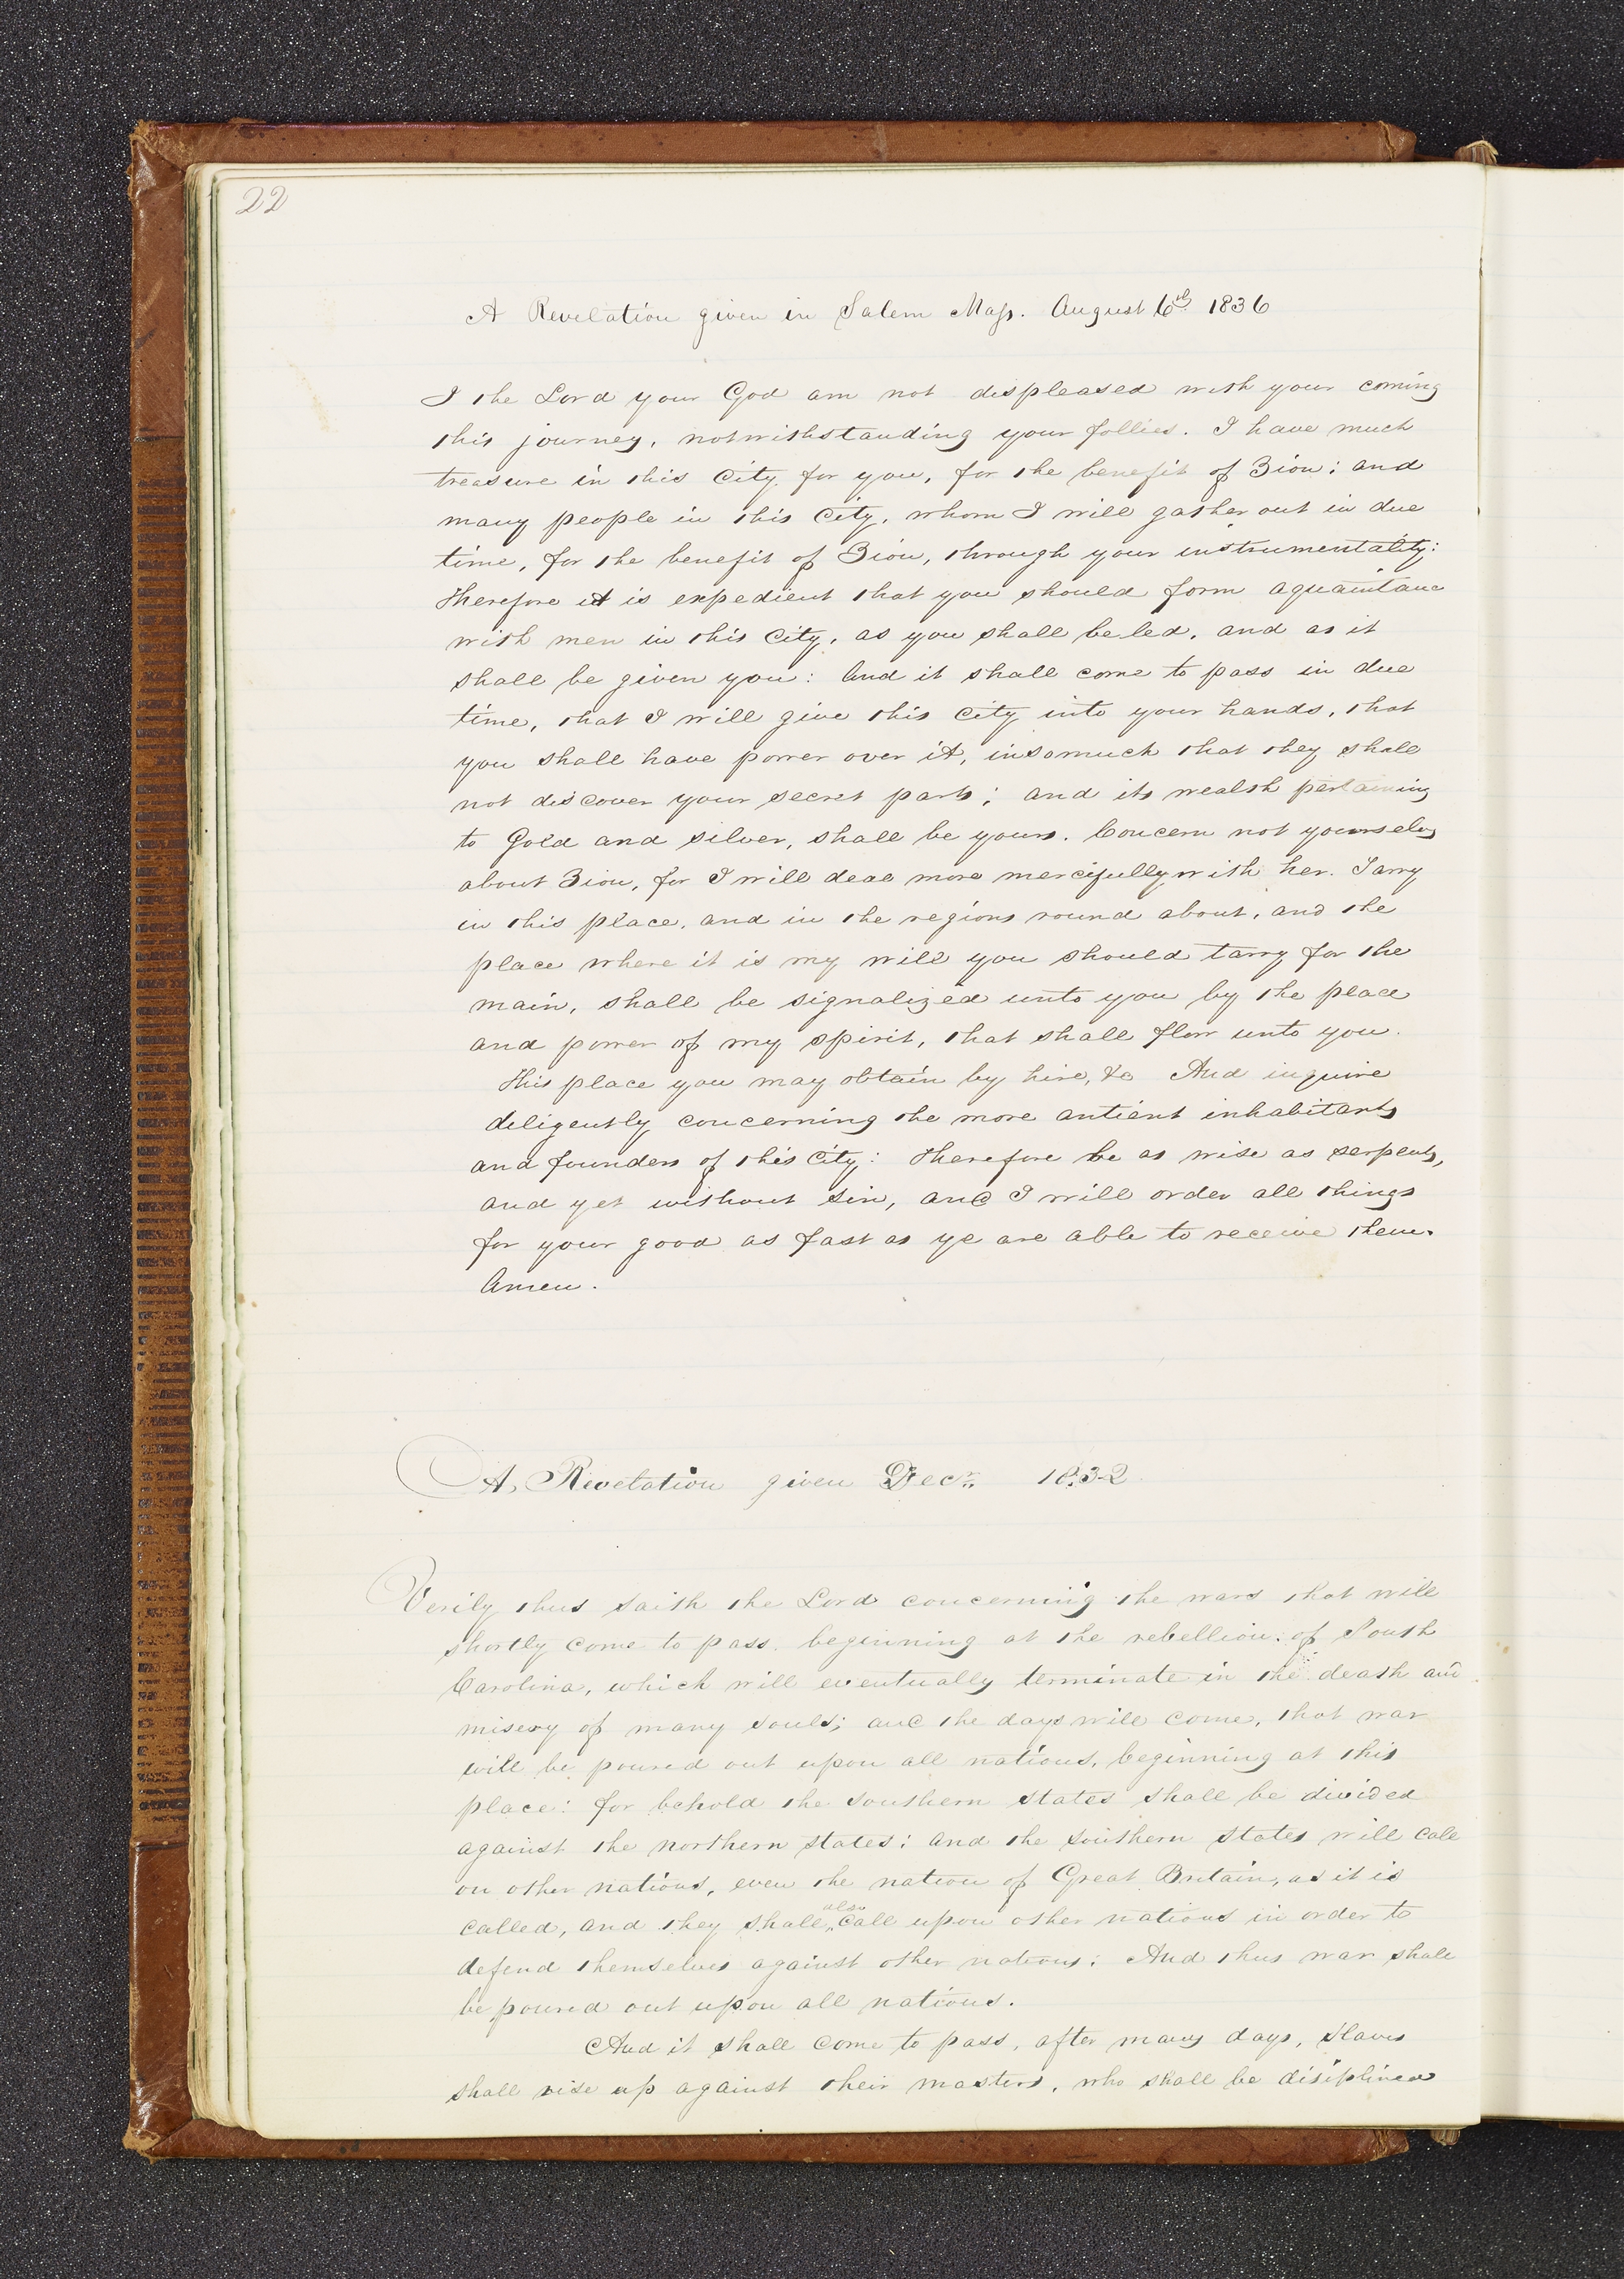 22
A Revelation given in Salem Mass. August 6th 1836
I the Lord your God am not displeased with your coming
this journey, notwithstanding your follies. I have much
treasure in this City for you, for the benefit of Zion; and
many people in this City, whom I will gather out in due
time, for the benefit of Zion, through your instrumentality:
Therefore it is expedient that you should form aquaintanc
with men in this City, as you shall be led, and as it
shall be given you: And it shall come to pass in due
time, that I will give this City into your hands, that
you shall have power over it, insomuch that they shall
not discover your secret parts; and its wealth pertaining
to Gold and silver, shall be yours. Concern not yourselvs
about Zion, for I will deal more mercifully with her. Tarry
in this place, and in the regions round about, and the
place where it is my will you should tarry for the
main, shall be signalized unto you by the place
and power of my spirit, that shall flow unto you.
This place you may obtain by hire, &c And inquire
diligently concerning the more antient inhabitants
and founders of this City: Therefore be as wise as serpents,
and yet without sin, and I will order all things
for your good as fast as ye are able to receive them.
Amen.
A, Revelation given Decr. 1832
Verily thus saith the Lord concerning the wars that will
shortly come to pass. beginning at the rebellion of South
Carolina, which will eventually terminate in the death and
misery of many souls; and the days will come, that war
will be poured out upon all nations, beginning at this
place: for behold the southern states shall be divided
against the northern states: and the southern states will call
on other nations, even the nation of Great Britain, as it is
called, and they shall also call upon other nations in order to
defend themselves against other nations: And thus war shall
be poured out upon all nations.
And it shall come to pass, after many days, slaves
shall rise up against their masters, who shall be disiplined